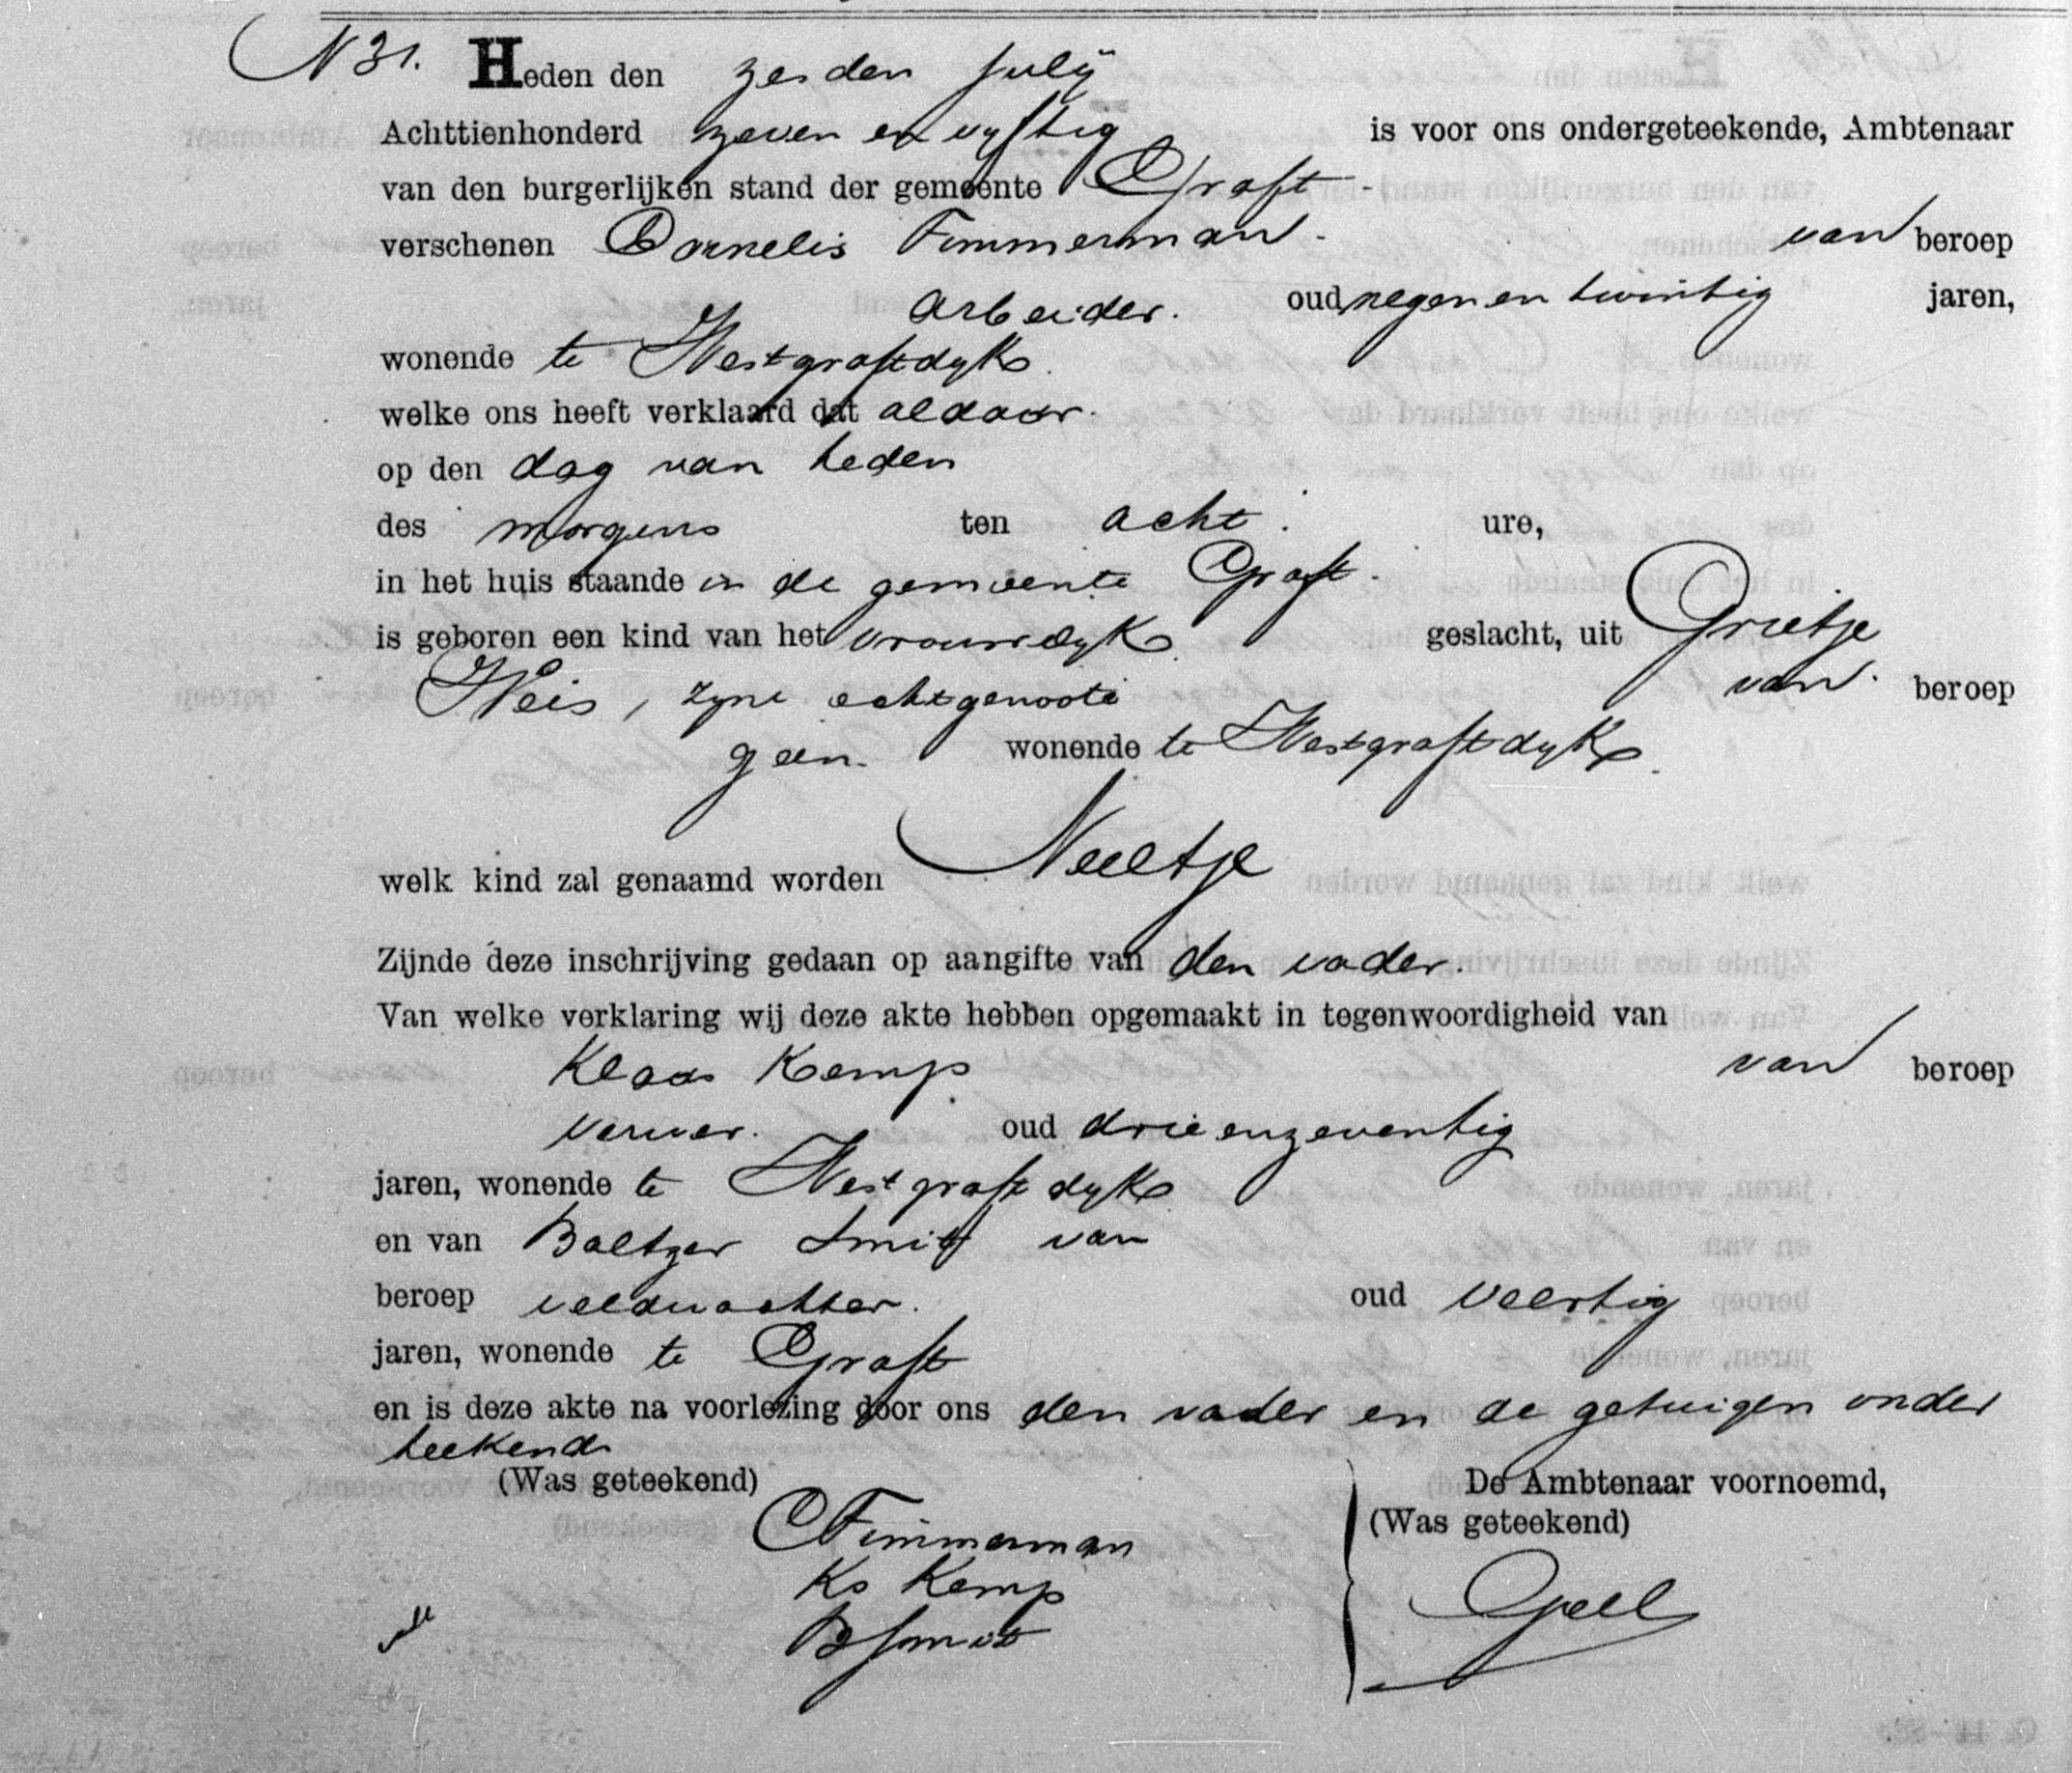 N 31. Heden den zesden Julÿ
Achttienhonderd zeven en vyftig is voor ons ondergeteekende, Ambtenaar
van den burgerlijken stand der gemeente Graft -
verschenen Cornelis Timmerman - van beroep
arbeider. oud negen en twintig jaren,
wonende te Westgraftdyk.
welke ons heeft verklaard dat aldaar.
op den dag van heden
des morgens ten acht. ure,
in het huis staande in de gemeente Graft -
is geboren een kind van het vrouwelyk geslacht, uit Grietje
Weis, zyne echtgenoote van beroep
geen. wonende te Westgraftdyk.
welk kind zal genaamd worden Neeltje
Zijnde deze inschrijving gedaan op aangifte van den vader.
Van welke verklaring wij deze akte hebben opgemaakt in tegenwoordigheid van
Klaas Kemp van beroep
verwer. oud drieenzeventig
jaren, wonende te Westgraftdyk
en van Baltzer Smit van
beroep veldwachter. oud veertig
jaren, wonende te Graft
en is deze akte na voorlezing door ons den vader en de getuigen onder
teekend
(Was geteekend) De Ambtenaar voornoemd,
(Was geteekend)
C Timmerman
Ks Kemp
B Smit